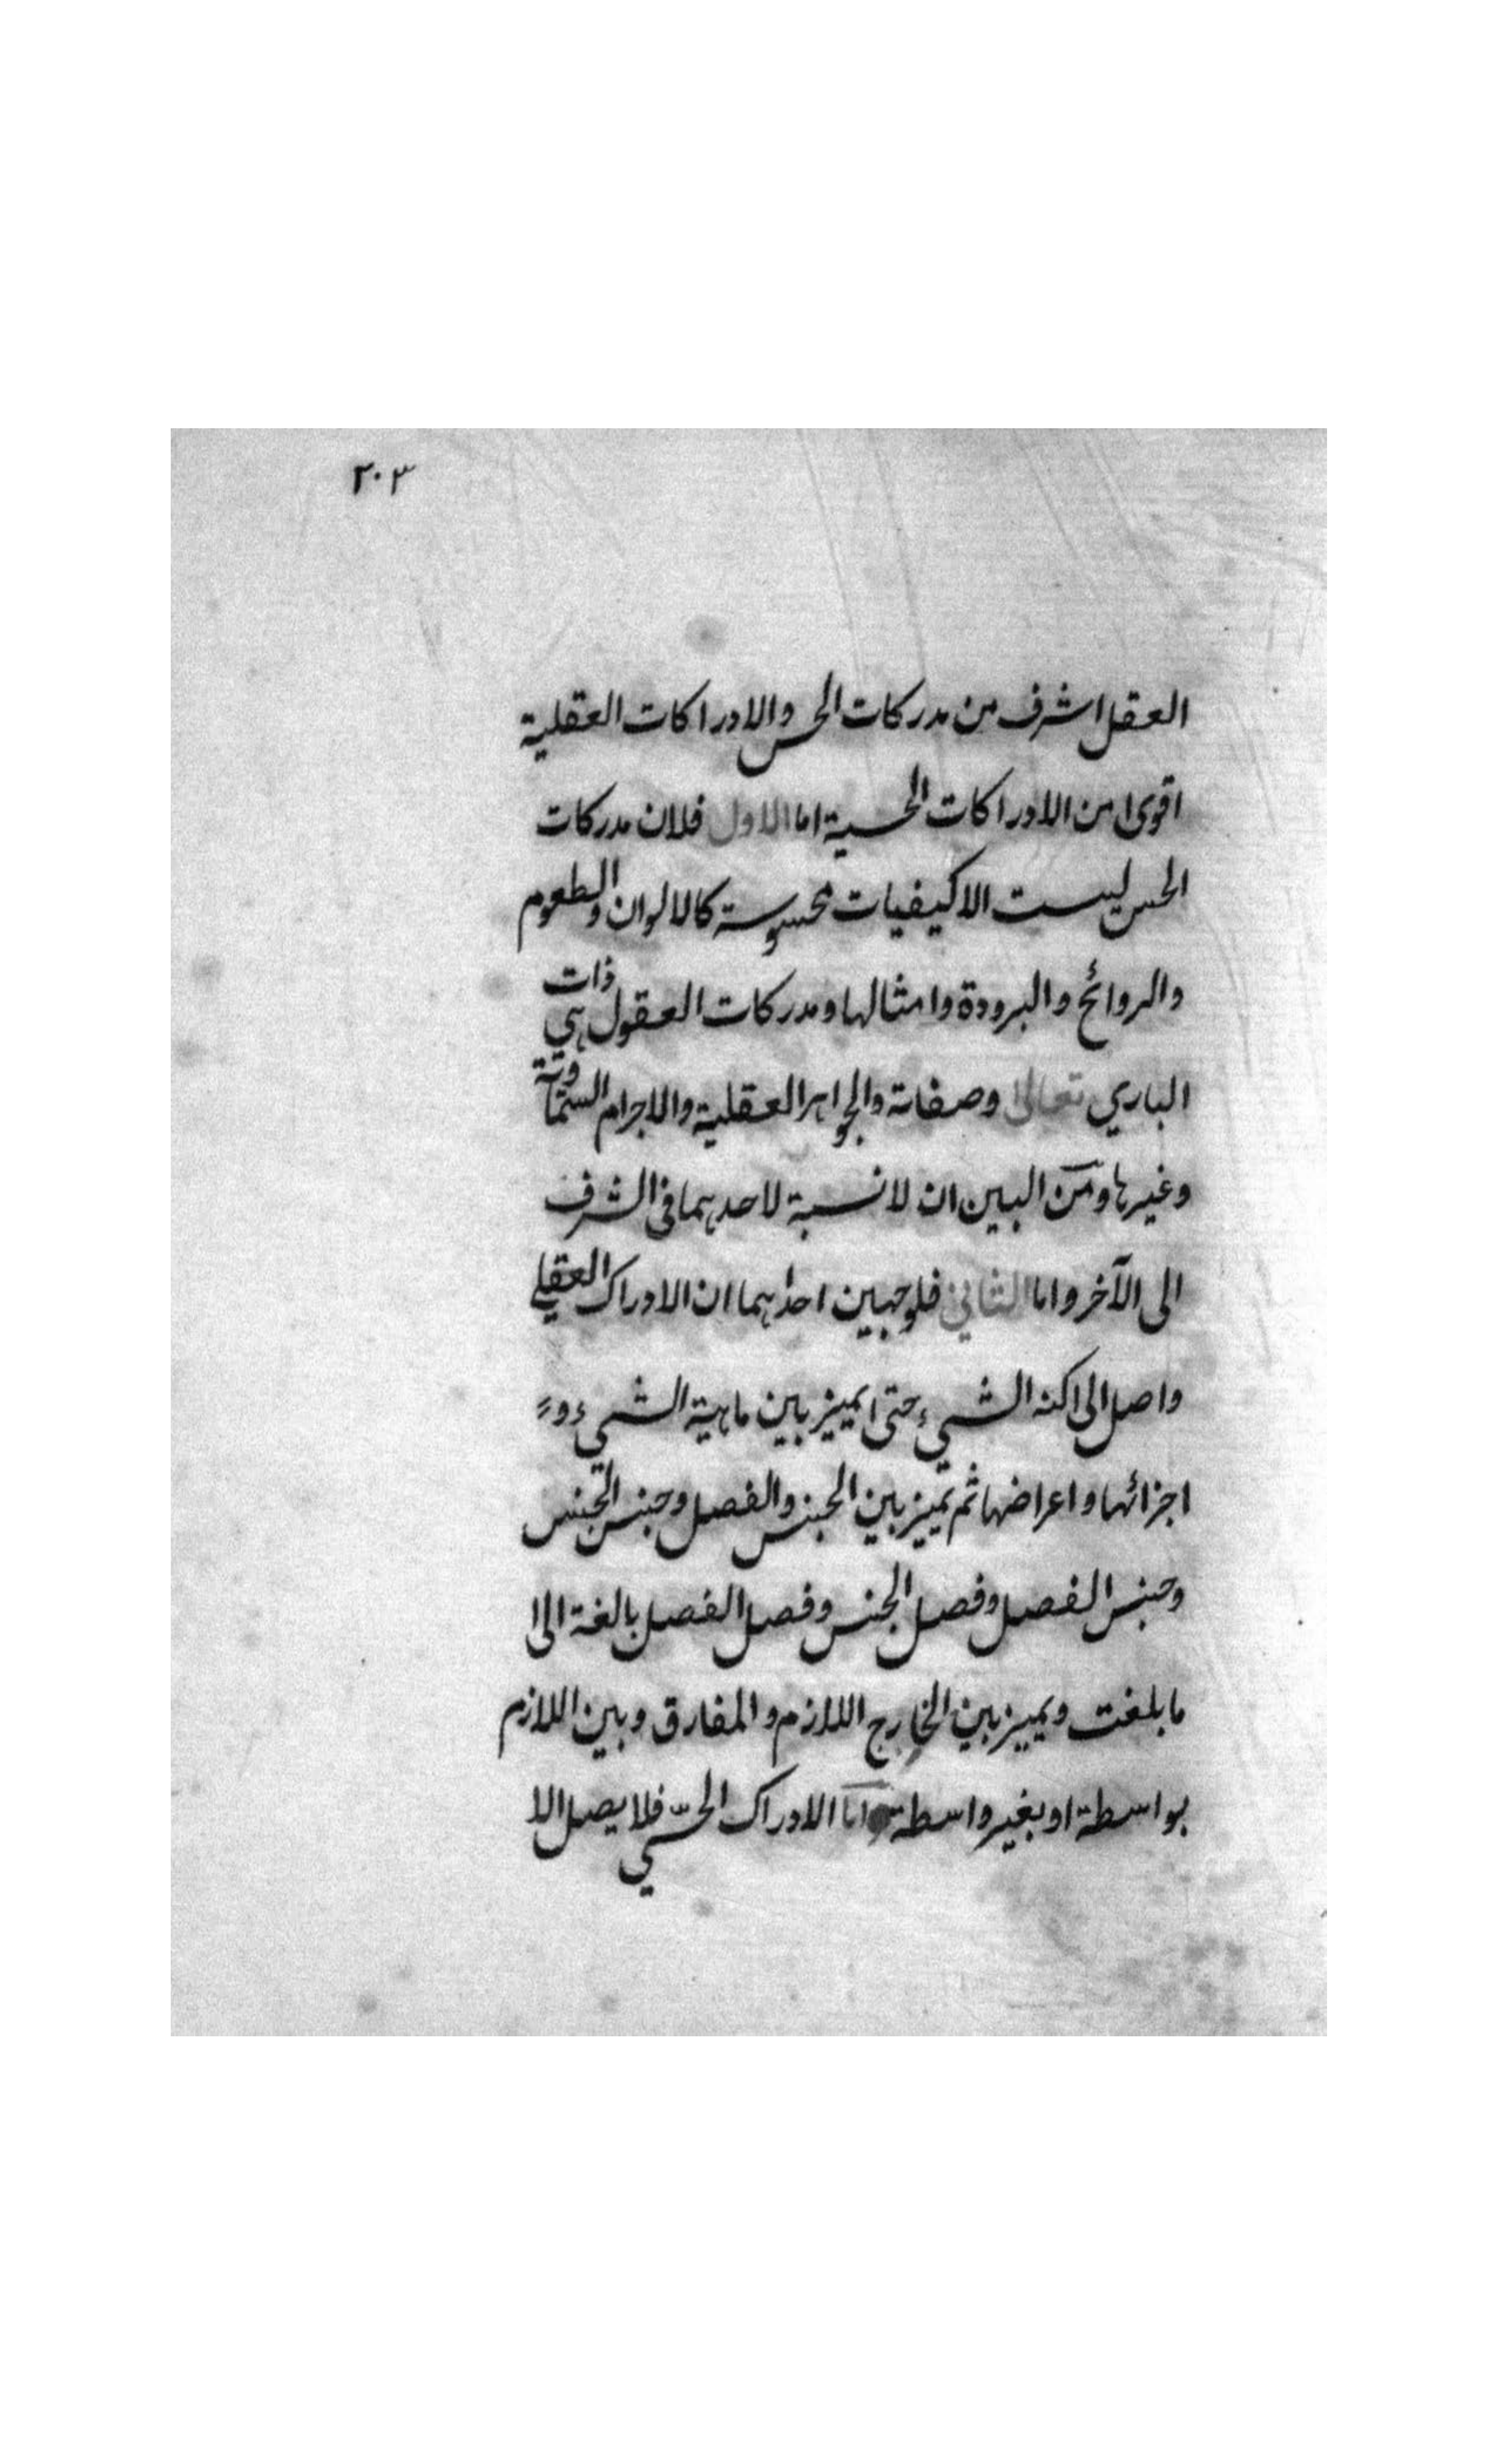 ٢٠٣
العقل اشرف من مدركات الحس والادراكات العقلية
اقوى من الادراكات الحسية اما الاول فلان مدركات
الحس ليست الا كيفيات محسوسة كالالوان والطعوم
والروائح والبرودة وامثالها ومدركات العقول هي ذات
الباري تعالى وصفاته والجواهر العقلية والاجرام السماوية
وغيرها ومن البين ان لا نسبة لاحدهما في الشرف
الى الآخر واما الثاني فلوجهين احدهما ان الادراك العقلي
واصل الى كنه الشيء حتى يميز بين ماهية الشيء و
اجزائها واعراضها ثم تميز بين الجنس والفصل وجنس الجنس
وجنس الفصل وفصل الجنس وفصل الفصل بالغة الى
ما بلغت ويميز بين الخارج اللازم والمفارق وبين اللازم
بواسطة او بغير واسطة واما الادراك الحسّي فلا يصل الا